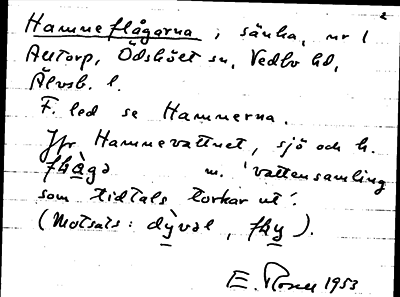 2
Hamneflågarna, sänka, nr 1
Autorp, Ödskölt sn, Vedbo hd,
Älvsb. l.
F. led se Hamnerna.
Jfr Hamnevattnet, sjö och h.
flåga m. 'vattensamling
som tidtals torkar ut'.
(Motsats: dyvəl, fly).
E. Rosell 1953